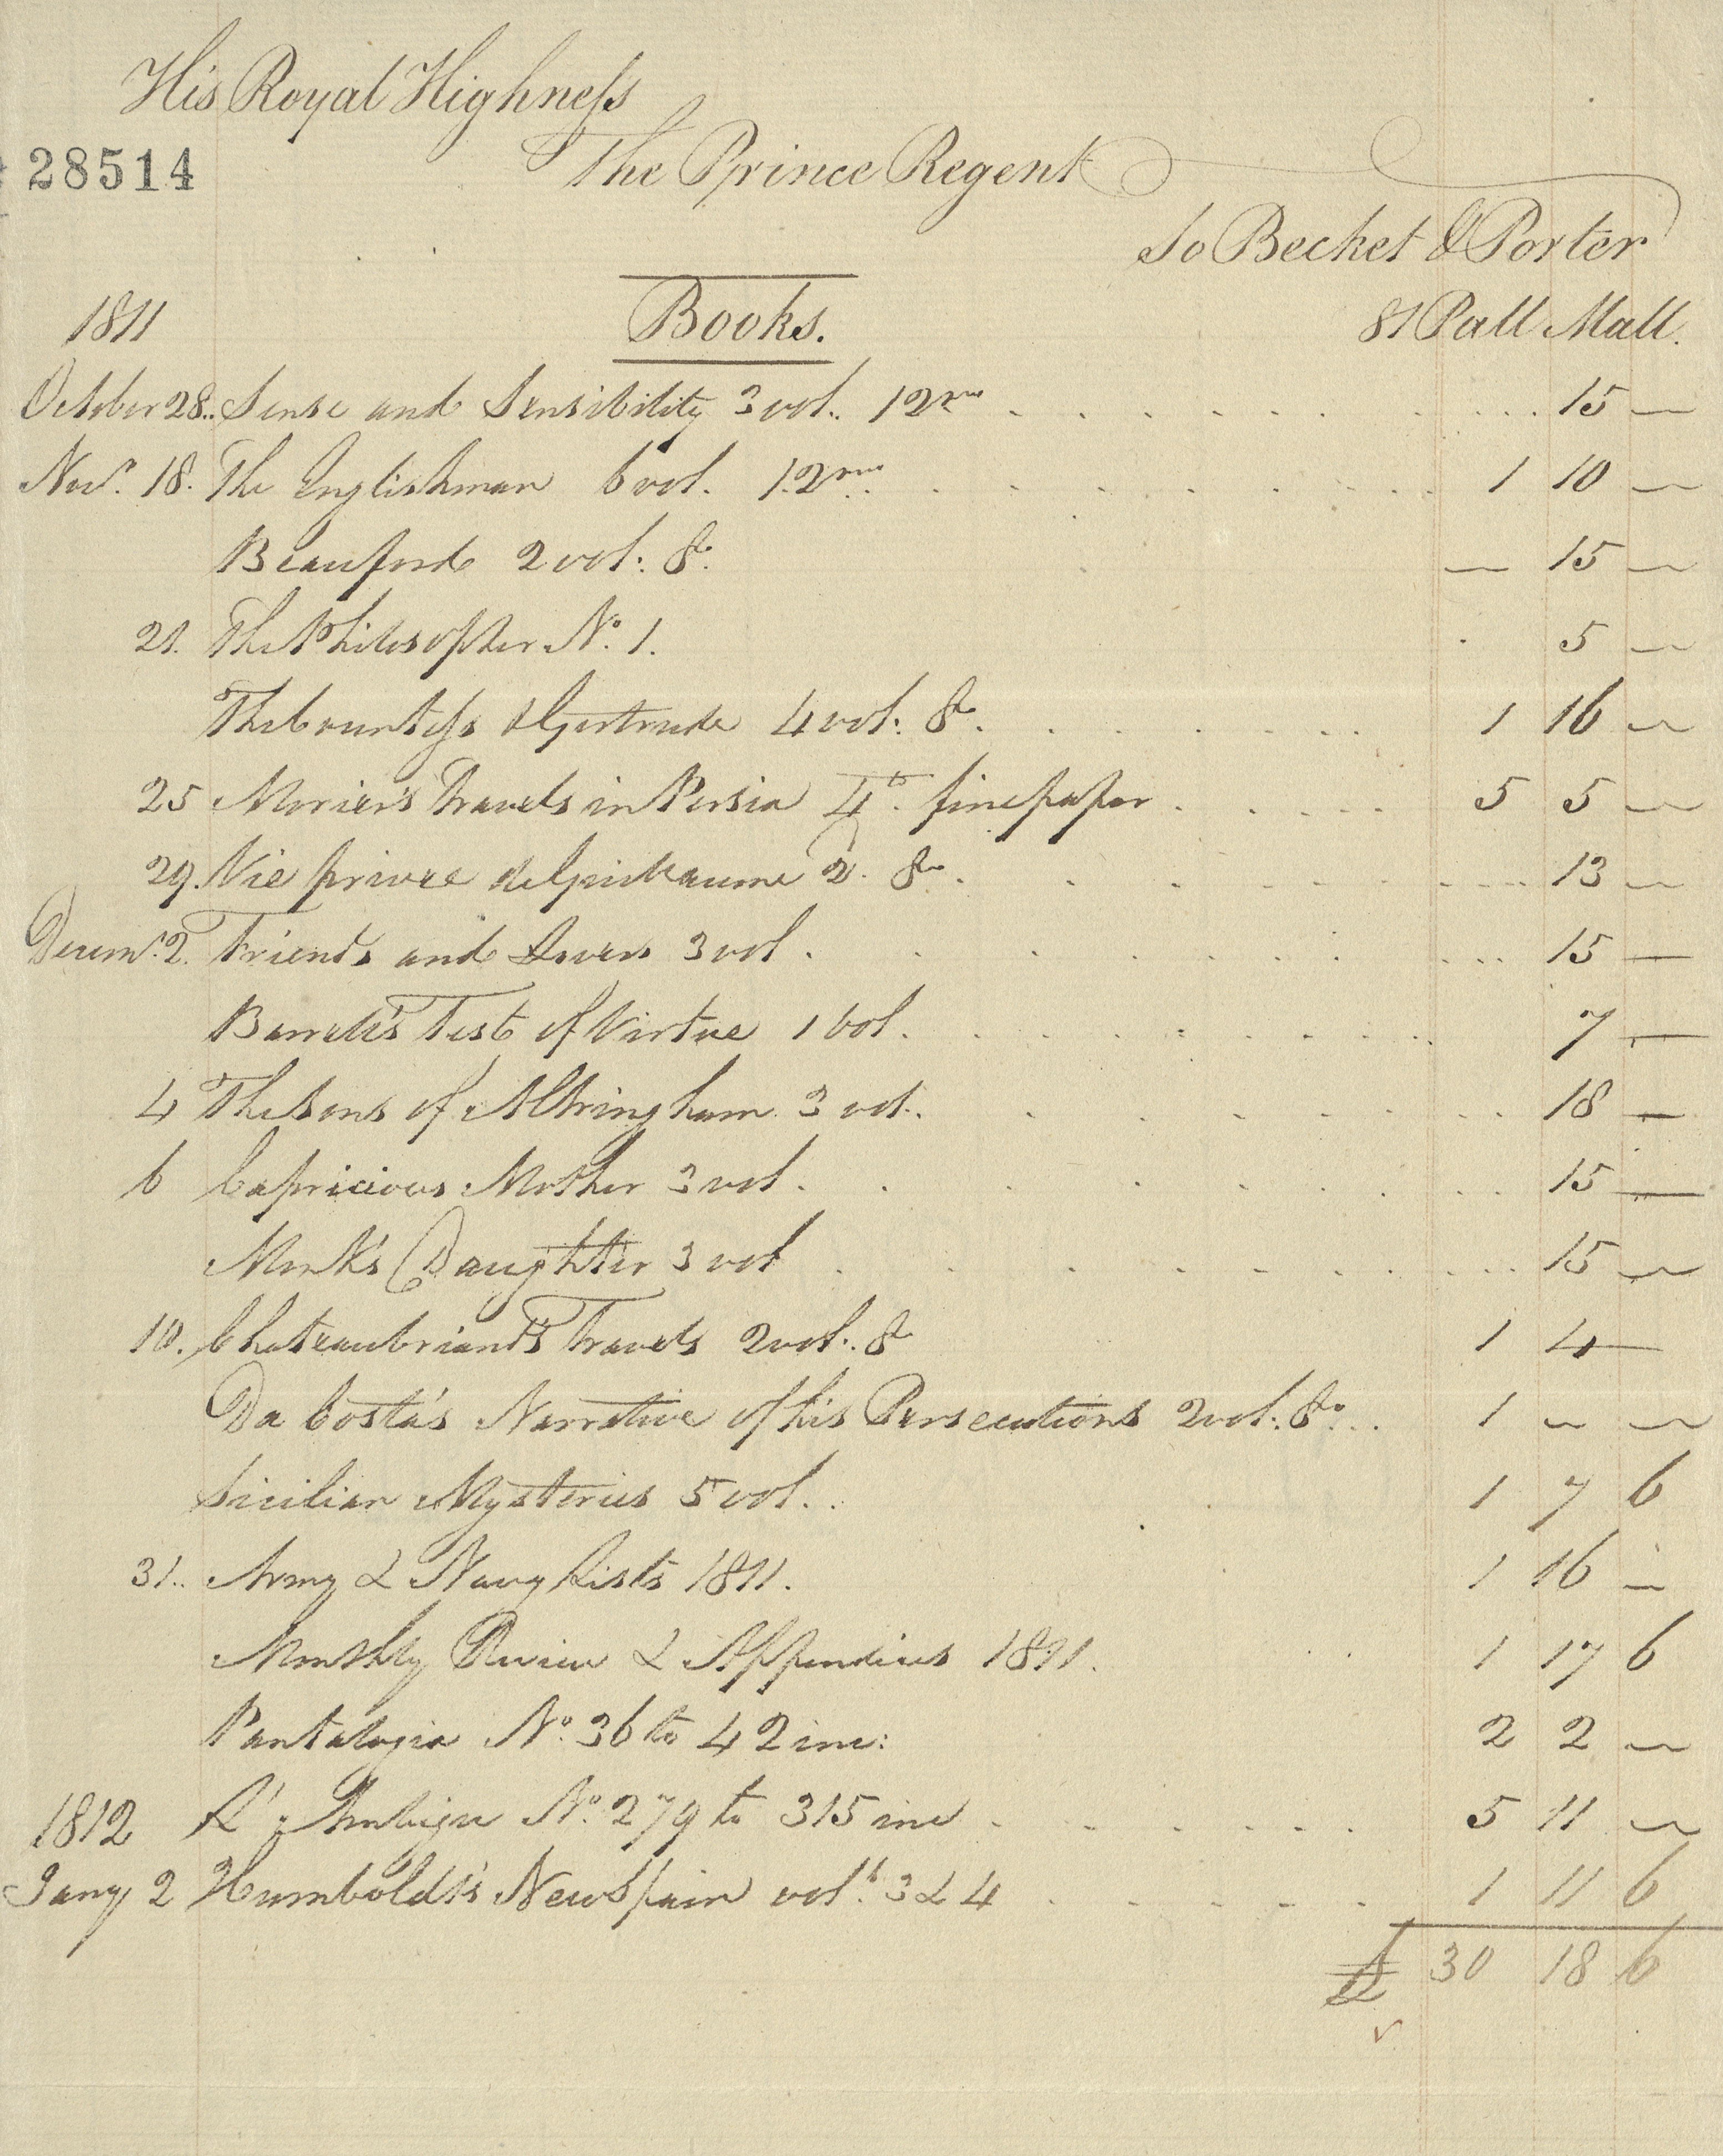 His Royal Highness
28514
The Prince Regent
To Becket & Porter
81 Pall Mall.
1811 Books.
October 28.. Sense and Sensibility 3 vol.. 12mo 15 —
Novr. 18. The Englishman 6 vol. 12mo.. 1 10 —
Beauford 2 vol: 8o. — 15 —
21. The Philosopher No. 1. 5 —
The Countess & Gertrude 4 vol: 8o. 1 16 —
25 Morier's Travels in Persia 4to. fine paper 5 5 —
29. Vie privée de 2. 8vo. 13 —
Decemr. 2. Friends and Lovers 3 vol. 15 —
Barrett's Test of Virtue 1 vol. 7 —
4 The Sons of Altringham 3 vol. 18 —
6 Capricious Mother 3 vol. 15 —
Monk's Daughter 3 vol 15 —
10. Chateaubriand's Travels 2 vol:. 8o 1 4 —
Da Costa's Narrative of his Persecutions 2 vol:. 8o... 1 — —
Sicilian Mysteries 5 vol. . 1 7 6
31.. Army & Navy Lists 1811. 1 16 —
Monthly Review & Appendices 1811. 1 17 6
Pantalogia No. 36 to 42 inc: 2 2 —
1812 L'Ambigu No. 279 to 315 inc 5 11 —
Jany 2 Humboldt's New Spain vols. 3 & 4 1 11 6
£ 30 18 6